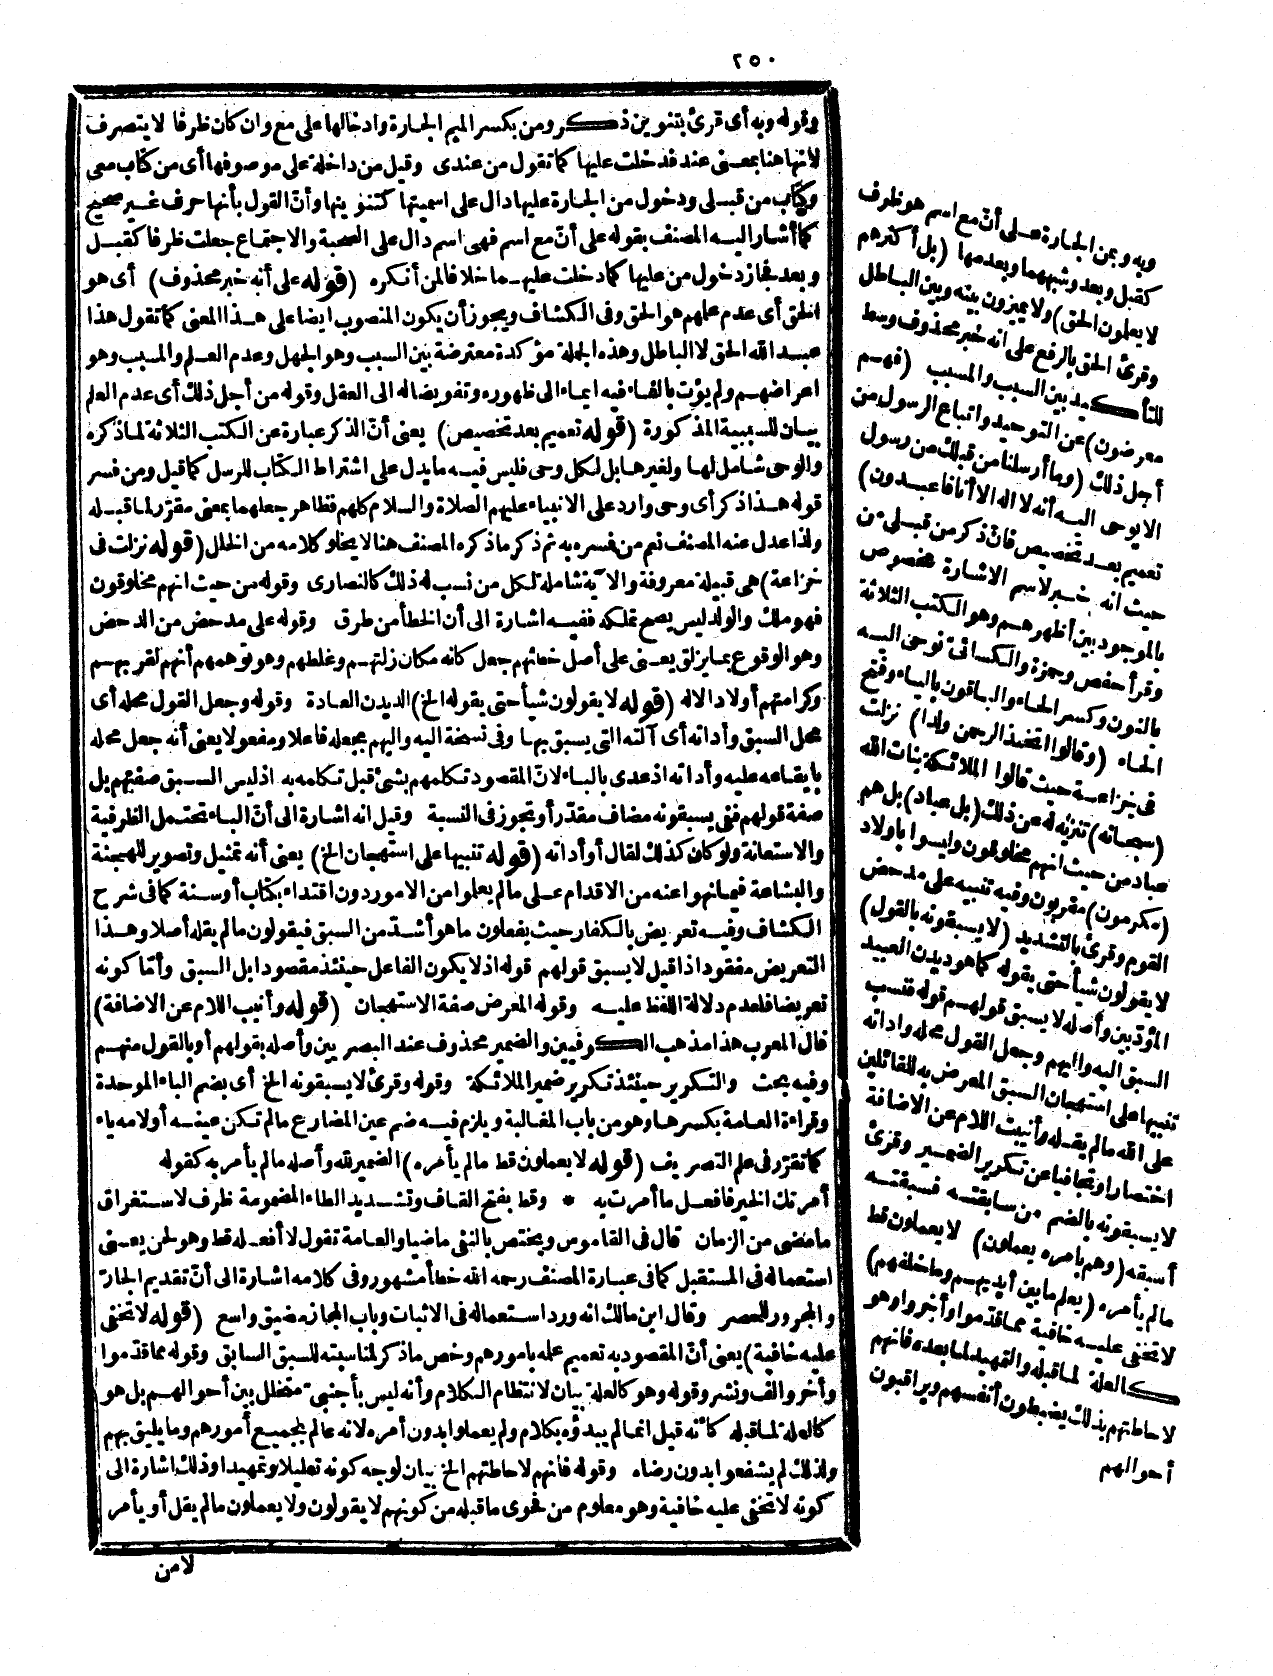 ٢٥٠
وقوله وبه أى قرئ بتنوين ذكر ومن بكسر الميم الجارة وادخالها على مع وان كان ظرفا لا يتصرف
لانها هنا بمعنى عند فدخلت عليها كما تقول من عندى وقيل من داخلة على موصوفها أى من كتاب معى
وكتاب من قبلى ودخول من الجارة عليها دال على اسميتها كتنوينها وأن القول بأنها حرف غير صحيح
كما أشار اليه المصنف بقوله على أن مع اسم فهى اسم دال على الصحبة والاجتماع جعلت ظرفا كقبل
وبعد فجاز دخول من عليها كما دخلت عليه ما خلافا لمن أنكره (قوله على أنه خبر محذوف) أى هو
الحق أى عدم علمهم هو الحق وفى الكشاف ويجوز أن يكون المنصوب ايضا على هذا المعنى كما تقول هذا
عبد الله الحق لا الباطل وهذه الجملة مؤكدة معترضة بين السبب وهو الجهل وعدم العلم والمسبب وهو
اعراضهم ولم يؤت بالفاء فيه ايماء الى ظهوره وتفويضا له الى العقل وقوله من أجل ذلك أى عدم العلم
بيان للسببية المذكورة (قوله تعميم بعد تخصيص) يعنى أن الذكر عبارة عن الكتب الثلاثة لما ذكره
والوحى شامل لها ولغيرها بل لكل وحى فليس فيه ما يدل على اشتراط الكتاب للرسل كما قيل ومن فسر
قوله هذا ذكر أى وحى وارد على الانبياء عليهم الصلاة والسلام كلهم فظاهر جعلهما بمعنى مقرر لما قبله
ولذا عدل عنه المصنف نعم من فسره به ثم ذكر ما ذكره المصنف هنا لا يخلو كلامه من الخلل (قوله نزلت فى
خزاعة) هى قبيلة معروفة والآية شاملة لكل من نسب له ذلك كالنصارى وقوله من حيث انهم مخلوقون
فهو ملك والولد ليس يصح تملكه ففيه اشارة الى أن الخطأ من طرق وقوله على مدحض من الدحض
وهو الوقوع بما يزلق يعنى على أصل خطئهم جعل كانه مكان زلتهم وغلطهم وهو توهمهم أنهم لقربهم
وكرامتهم أولاد الاله (قوله لا يقولون شيأ حتى يقوله الخ) الديدن العادة وقوله وجعل القول محله أى
محل السبق وأداته أى آلته التى يسبق بها وفى نسخة اليه واليهم بجعله فاعلا ومفعولا يعنى أنه جعل محله
بايقاعه عليه وأداته اذ عدى بالباء لان المقصود تكلمهم بشئ قبل تكلمه به اذ ليس السبق صفتهم بل
صفة قولهم ففى يسبقونه مضاف مقدر أو تجوز فى النسبة وقيل انه اشارة الى أن الباء تحتمل الظرفية
والاستعانة ولو كان كذلك لقال أو أداته (قوله تنبيها على استهجان الخ) يعنى أنه تمثيل وتصوير للهجنة
والبشاعة فيما نهوا عنه من الاقدام على ما لم يعلموا من الامور دون اقتداء بكتاب أو سنة كما فى شرح
الكشاف وفيه تعريض بالكفار حيث يفعلون ما هو أشد من السبق فيقولون ما لم يقله أصلا وهذا
التعريض مفقود اذا قيل لا يسبق قولهم قوله اذ لا يكون الفاعل حينئذ مقصودا بل السبق وأما كونه
تعريضا فلعدم دلالة اللفظ عليه وقوله المعرض صفة الاستهجان (قوله وأنيب اللام عن الاضافة)
قال المعرب هذا مذهب الكوفيين والضمير محذوف عند البصريين وأصله بقولهم أو بالقول منهم
وفيه بحث والتكرير حينئذ تكرير ضمير الملائكة وقوله وقرئ لا يسبقونه الخ أى بضم الباء الموحدة
وقراءة العامة بكسرها وهو من باب المغالبة ويلزم فيه ضم عين المضارع ما لم تكن عينه أو لامه ياء
كما تقرر فى علم التصريف (قوله لا يعملون قط ما لم يأمره) الضمير لله وأصله ما لم يأمر به كقوله
أمرتك الخير فافعل ما أمرت به * وقط بفتح القاف وتشديد الطاء المضمومة ظرف لاستغراق
ما مضى من الزمان قال فى القاموس ويختص بالنفى ماضيا والعامة تقول لا أفعله قط وهو لحن يعنى
استعماله فى المستقبل كما فى عبارة المصنف رحمه الله خطأ مشهور وفى كلامه اشارة الى أن تقديم الجار
والمجرور للحصر وقال ابن مالك انه ورد استعماله فى الاثبات وباب المجاز مضيق واسع (قوله لا تخفى
عليه خافية) يعنى أن المقصود به تعميم علمه بامورهم وخص ما ذكر لمناسبته للسبق السابق وقوله مما قدموا
وأخروا لف ونشر وقوله وهو كالعلة بيان لانتظام الكلام وأنه ليس بأجنبى متخلل بين أحوالهم بل هو
كالعلة لما قبله كأنه قيل انما لم يبدؤه بكلام ولم يعملوا بدون أمره لانه عالم بجميع أمورهم وما يليق بهم
ولذلك لم يشفعوا بدون رضاه وقوله فانهم لاحاطتهم الخ بيان لوجه كونه تعليلا وتمهيدا وذلك اشارة الى
كونه لا تخفى عليه خافية وهو معلوم من فحوى ما قبله من كونهم لا يقولون ولا يعملون ما لم يقل أو يأمر
لا من
وبه وبمن الجارة على أن مع اسم هو ظرف
كقبل وبعد وشبههما وبعدمها (بل أكثرهم
لا يعلمون الحق) ولا يميزون بينه وبين الباطل
وقرئ الحق بالرفع على انه خبر محذوف وسط
للتأكيد بين السبب والمسبب (فهم
معرضون) عن التوحيد واتباع الرسول من
أجل ذلك (وما أرسلنا من قبلك من رسول
الا يوحى اليه أنه لا اله الا أنا فاعبدون)
تعميم بعد تخصيص فان ذكر من قبلى من
حيث انه خبر لاسم الاشارة مخصوص
بالموجود بين أظهرهم وهو الكتب الثلاثة
وقرأ حفص وحمزة والكسائى نوحى اليه
بالنون وكسر الحاء والباقون بالياء وفتح
الحاء (وقالوا اتخذ الرحمن ولدا) نزلت
فى خزاعة حيث قالوا الملائكة بنات الله
(سبحانه) تنزيه له عن ذلك (بل عباد) بل هم
عباد من حيث انهم مخلوقون وليسوا باولاد
(مكرمون) مقربون وفيه تنبيه على مدحض
القوم وقرئ بالتشديد (لا يسبقونه بالقول)
لا يقولون شيأ حتى يقوله كما هو ديدن العبيد
المؤدبين وأصله لا يسبق قولهم قوله فنسب
السبق اليه واليهم وجعل القول محله واداته
تنبيها على استهجان السبق المعرض به للقائلين
على الله ما لم يقله وأنيبت اللام عن الاضافة
اختصارا وتجافيا عن تكرير الضمير وقرئ
لا يسبقونه بالضم من سابقته فسبقته
أسبقه (وهم بامره يعملون) لا يعملون قط
ما لم يأمره (يعلم ما بين أيديهم وما خلفهم)
لا تخفى عليه خافية مما قدموا وأخروا وهو
كالعلة لما قبله والتمهيد لما بعده فانهم
لاحاطتهم بذلك يضبطون أنفسهم ويراقبون
أحوالهم